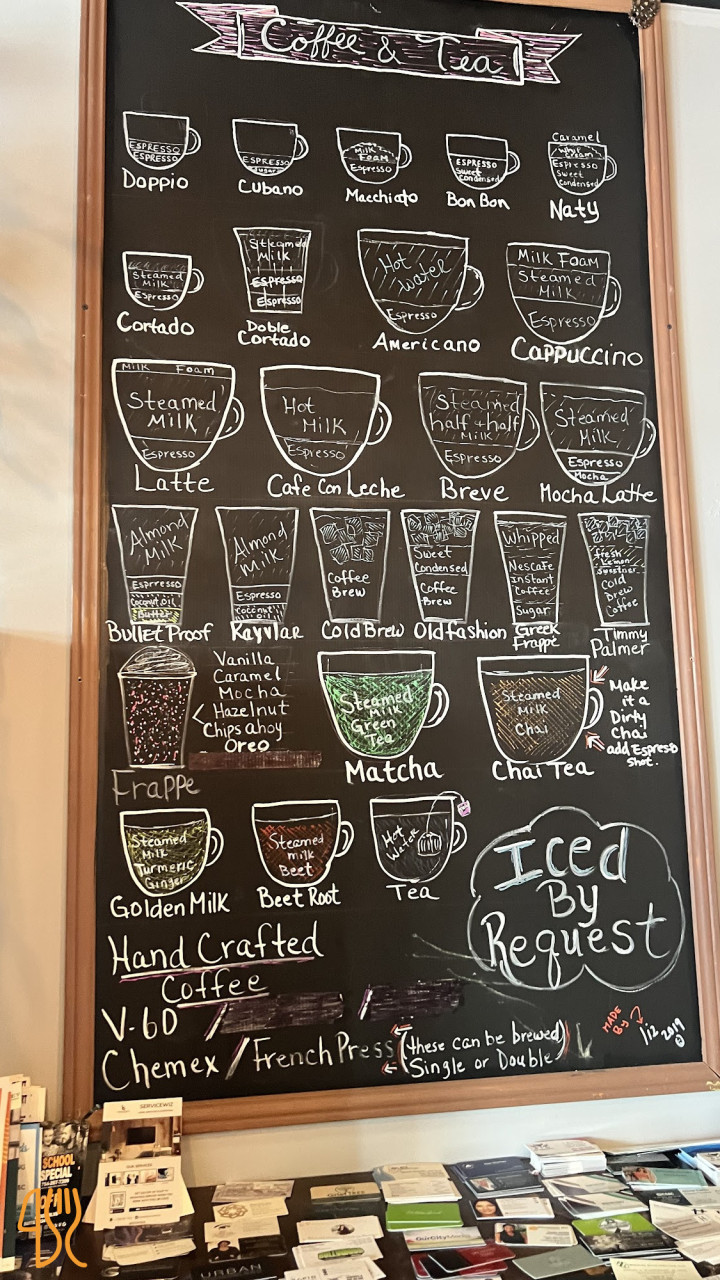 Coffee & Tea
ESPRESSO
ESPRESSO
Doppio
ESPRESSO
Sugar
Cubano
Milk
Foam
Espresso
Macchiato
ESPRESSO
Sweet
Condensed
Bon Bon
Caramel
Whip
Cream
Espresso
Sweet
Condensed
Naty
Steamed
Milk
Espresso
Cortado
Steamed
Milk
Espresso
Espresso
Doble
Cortado
Hot
Water
Espresso
Americano
Milk Foam
Steamed
Milk
Espresso
Cappuccino
Milk Foam
Steamed
Milk
Espresso
Latte
Hot
Milk
Espresso
Cafe Con Leche
Steamed
half + half
Milk
Espresso
Breve
Steamed
Milk
Espresso
Mocha
Mocha Latte
Almond
Milk
Espresso
Coconut Oil
Butter
Bullet Proof
Almond
Milk
Espresso
Coconut Oil
Kayvlar
Coffee
Brew
Cold Brew
Sweet
Condensed
Coffee
Brew
Old fashion
Whipped
Nescafe
Instant
Coffee
Sugar
Greek
Frappe
fresh
Lemon
Sweetner
Cold
Brew
Coffee
Timmy
Palmer
Vanilla
Caramel
Mocha
Hazelnut
Chips ahoy
Oreo
Frappe
Steamed
Milk
Green
Tea
Matcha
Steamed
Milk
Chai
Chai Tea
Make
it a
Dirty
Chai
add Espresso
Shot.
Steamed
Milk
Turmeric
Ginger
Golden Milk
Steamed
milk
Beet
Beet Root
Hot
Water
Tea
Iced
By
Request
Hand Crafted
Coffee
V-60 /
Chemex / French Press (these can be brewed)
Single or Double
MADE
By
liz 2019
SERVICEWIZ
SCHOOL
SPECIAL
OurCityMedia
URBAN